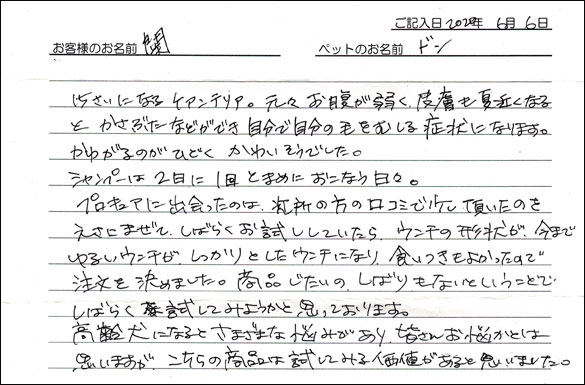 ご記入日 2024年 6月 6日
お客様のお名前 関 ペットのお名前 ドン
15さいになるケアンテリア。元々お腹が弱く、皮膚も夏近くなる
と かさぶたなどができ 自分で自分の毛をむしる 症状になります。
かゆがるのがひどく かわいそうでした。
シャンプーは2日に1回とまめにおこなう日々。
プロキュアに出会ったのは、近所の方の口コミで少し頂いたのを
えさにまぜて、しばらくお試ししていたら、ウンチの形状が、今まで
ゆるいウンチが、しっかりとしたウンチになり、食いつきもよかったので
注文を決めました。商品じたいの、しばりもないということで
しばらく試してみようかと思っております。
高齢犬になるとさまざまな悩みがあり、皆さんお悩かとは
思いますが、こちらの商品は試してみる価値があると思いました。